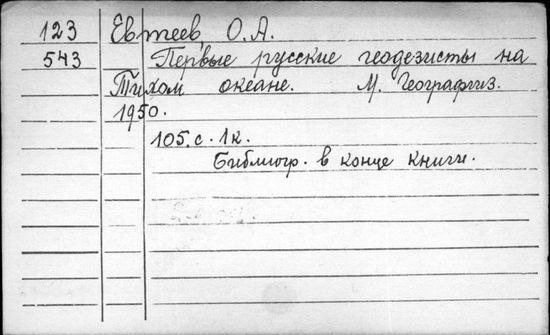 123 Евтеев, О.А.
543 Первые русские геодезисты на
Тихом океане. М. Географгиз.
1950.
105.с. 1к.
Библиогр. в конце книги.